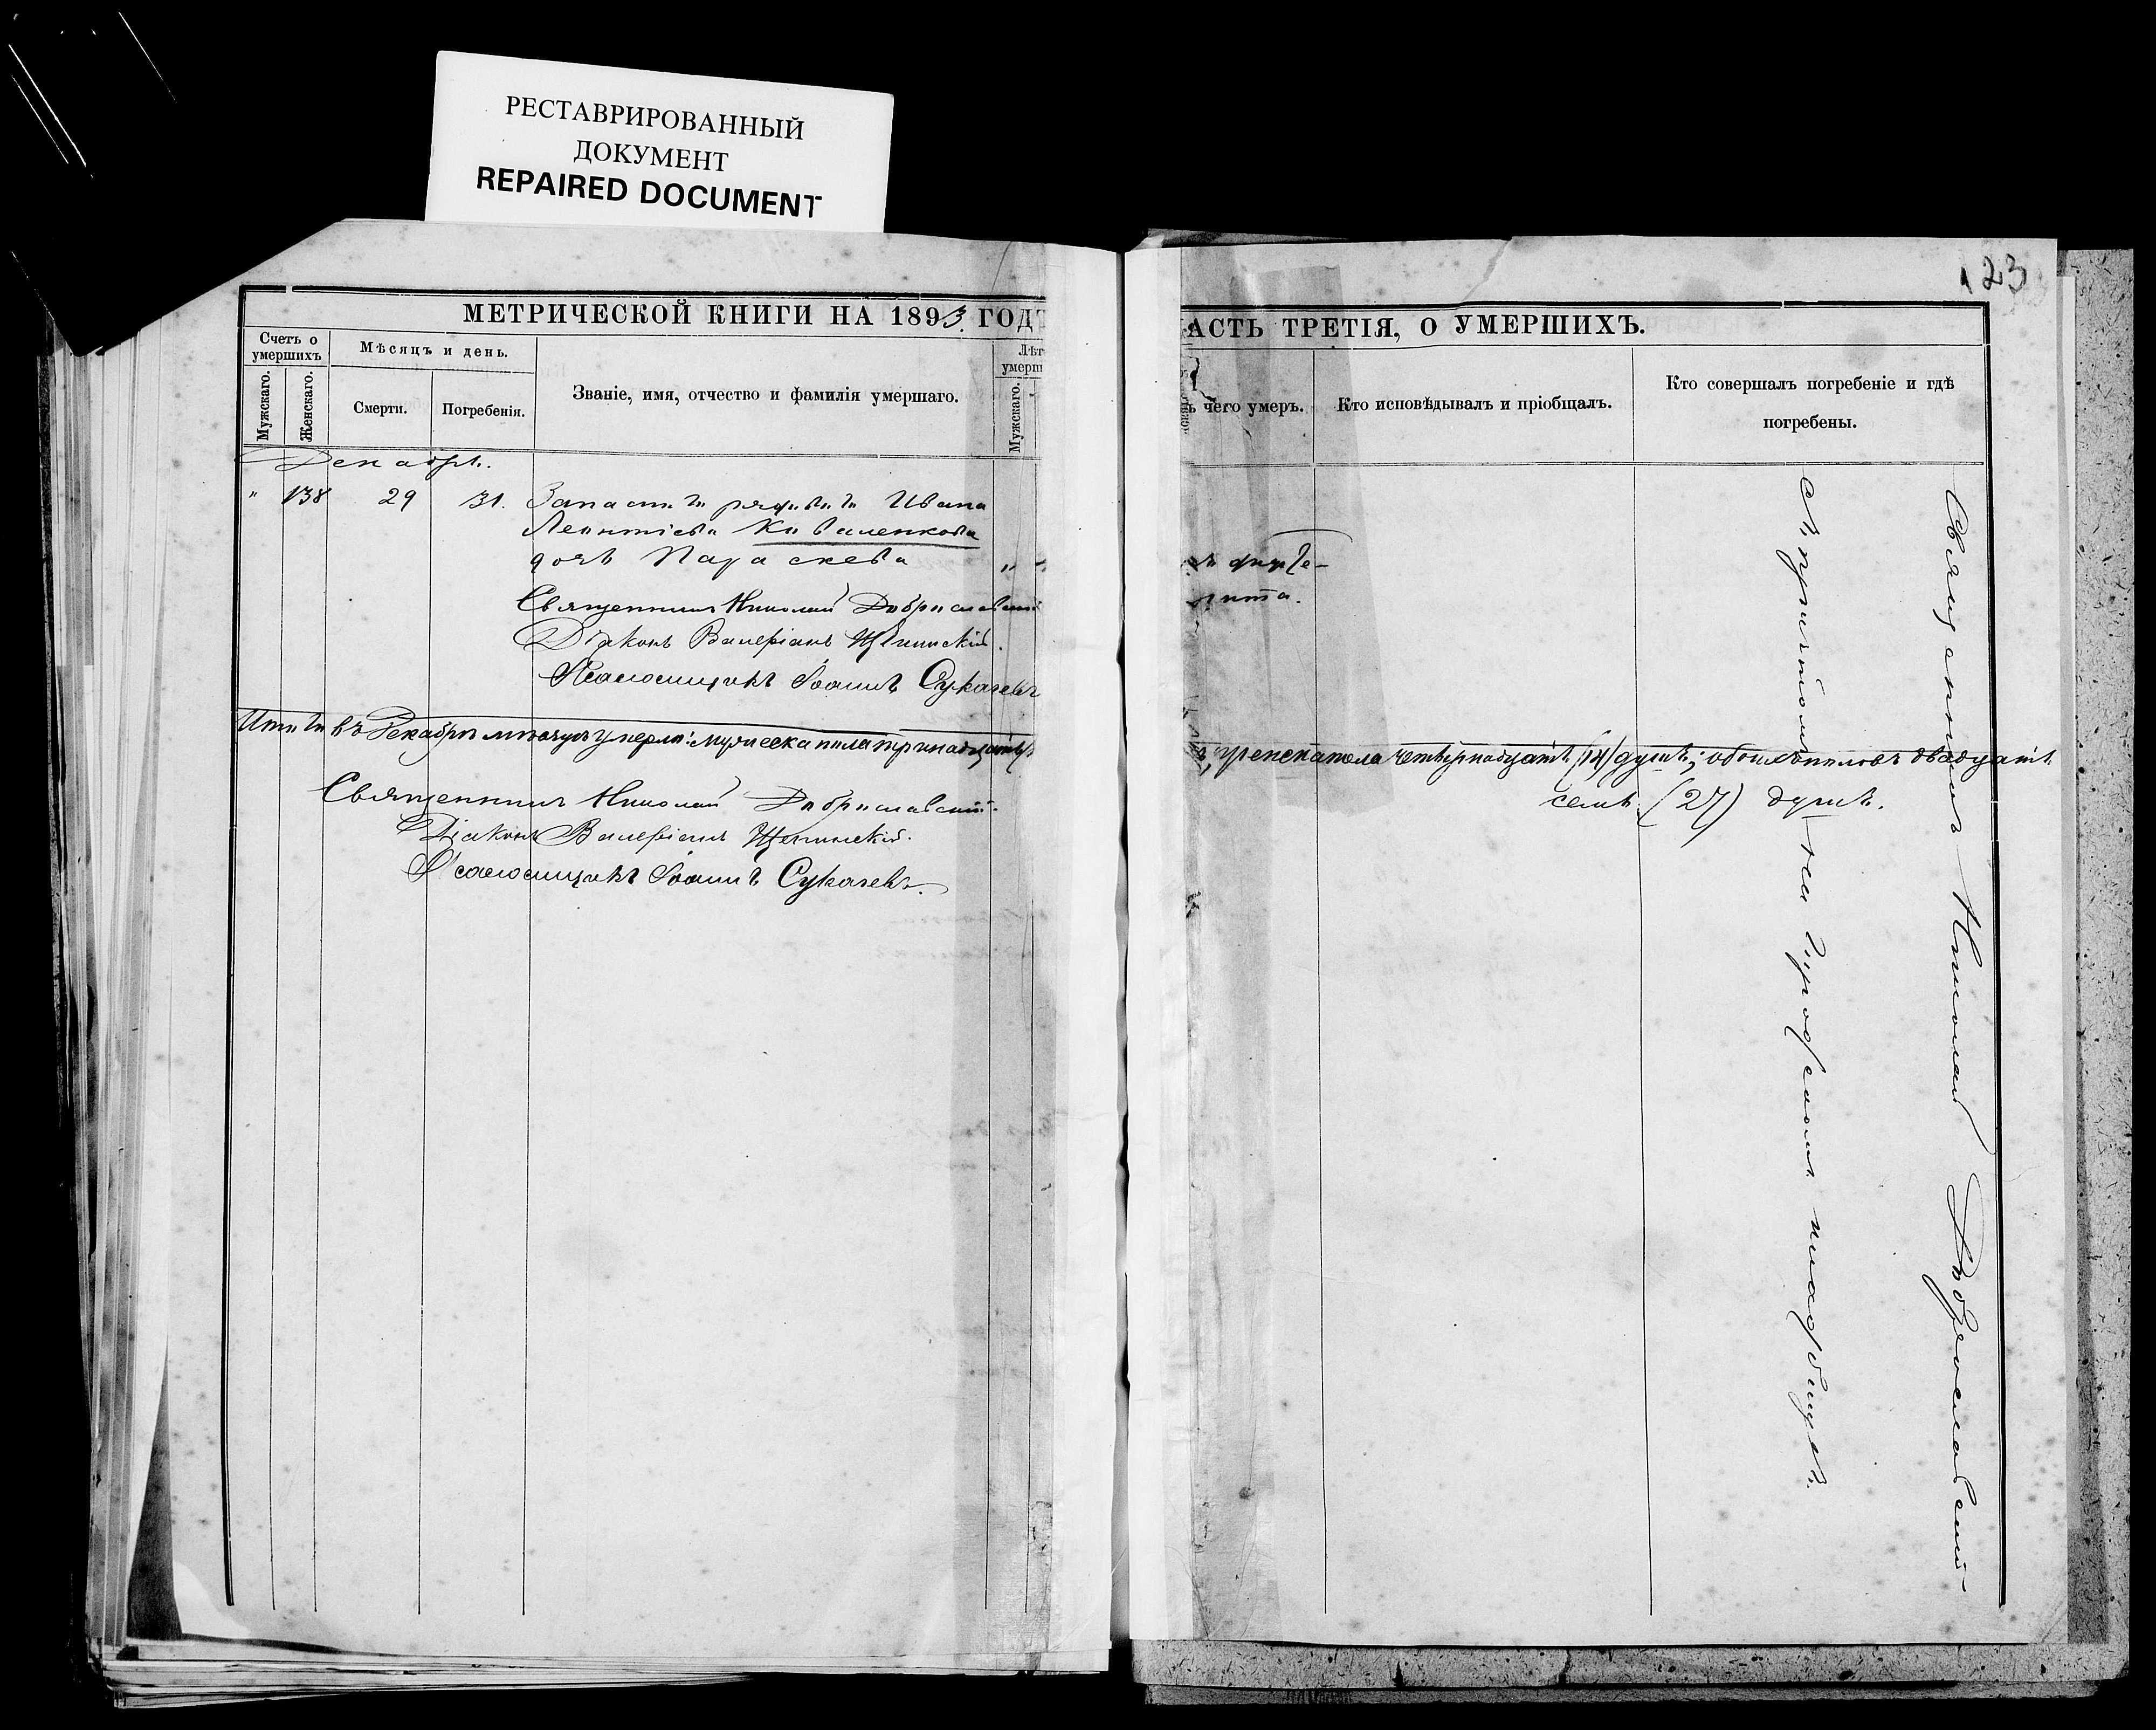 РЕСТАВРИРОВАННЫЙ
ДОКУМЕНТ
REPAIRED DOCUMENT
МЕТРИЧЕСКОЙ КНИГИ НА 1893. ГОДЪ
Счетъ о умершихъ
Мужскаго.
Женскаго.
Мѣсяцъ и день.
Смерти.
Погребенія.
Званіе, имя, отчество и фамилія умершаго.
Лѣт
умерш
Мужскаго.
Декабрь.
" 138 29 31. Запаснаго рядоваго Ивана
Леонтіева Коваленкова
дочь Параскева "
Священникъ Николай Доброславскій
Діаконъ Валеріанъ Щепинскій.
Псаломщикъ Іоаннъ Сукачевъ
Итого въ Декабрѣ мѣсяцѣ умерло: мужеска пола тринадцать
Священникъ Николай Доброславскій.
Діаконъ Валеріанъ Щепинскій.
Псаломщикъ Іоаннъ Сукачевъ.
123
АСТЬ ТРЕТІЯ, О УМЕРШИХЪ.
ъ чего умеръ.
Кто исповѣдывалъ и пріобщалъ.
Кто совершалъ погребеніе и гдѣ
погребены.
дифте-
рита.
Священникъ Николай Доброславскій
съ причтомъ на городскомъ кладбищѣ.
женска пола четырнадцать (14) душъ; обоихъ половъ двадцать
семь (27) душъ.